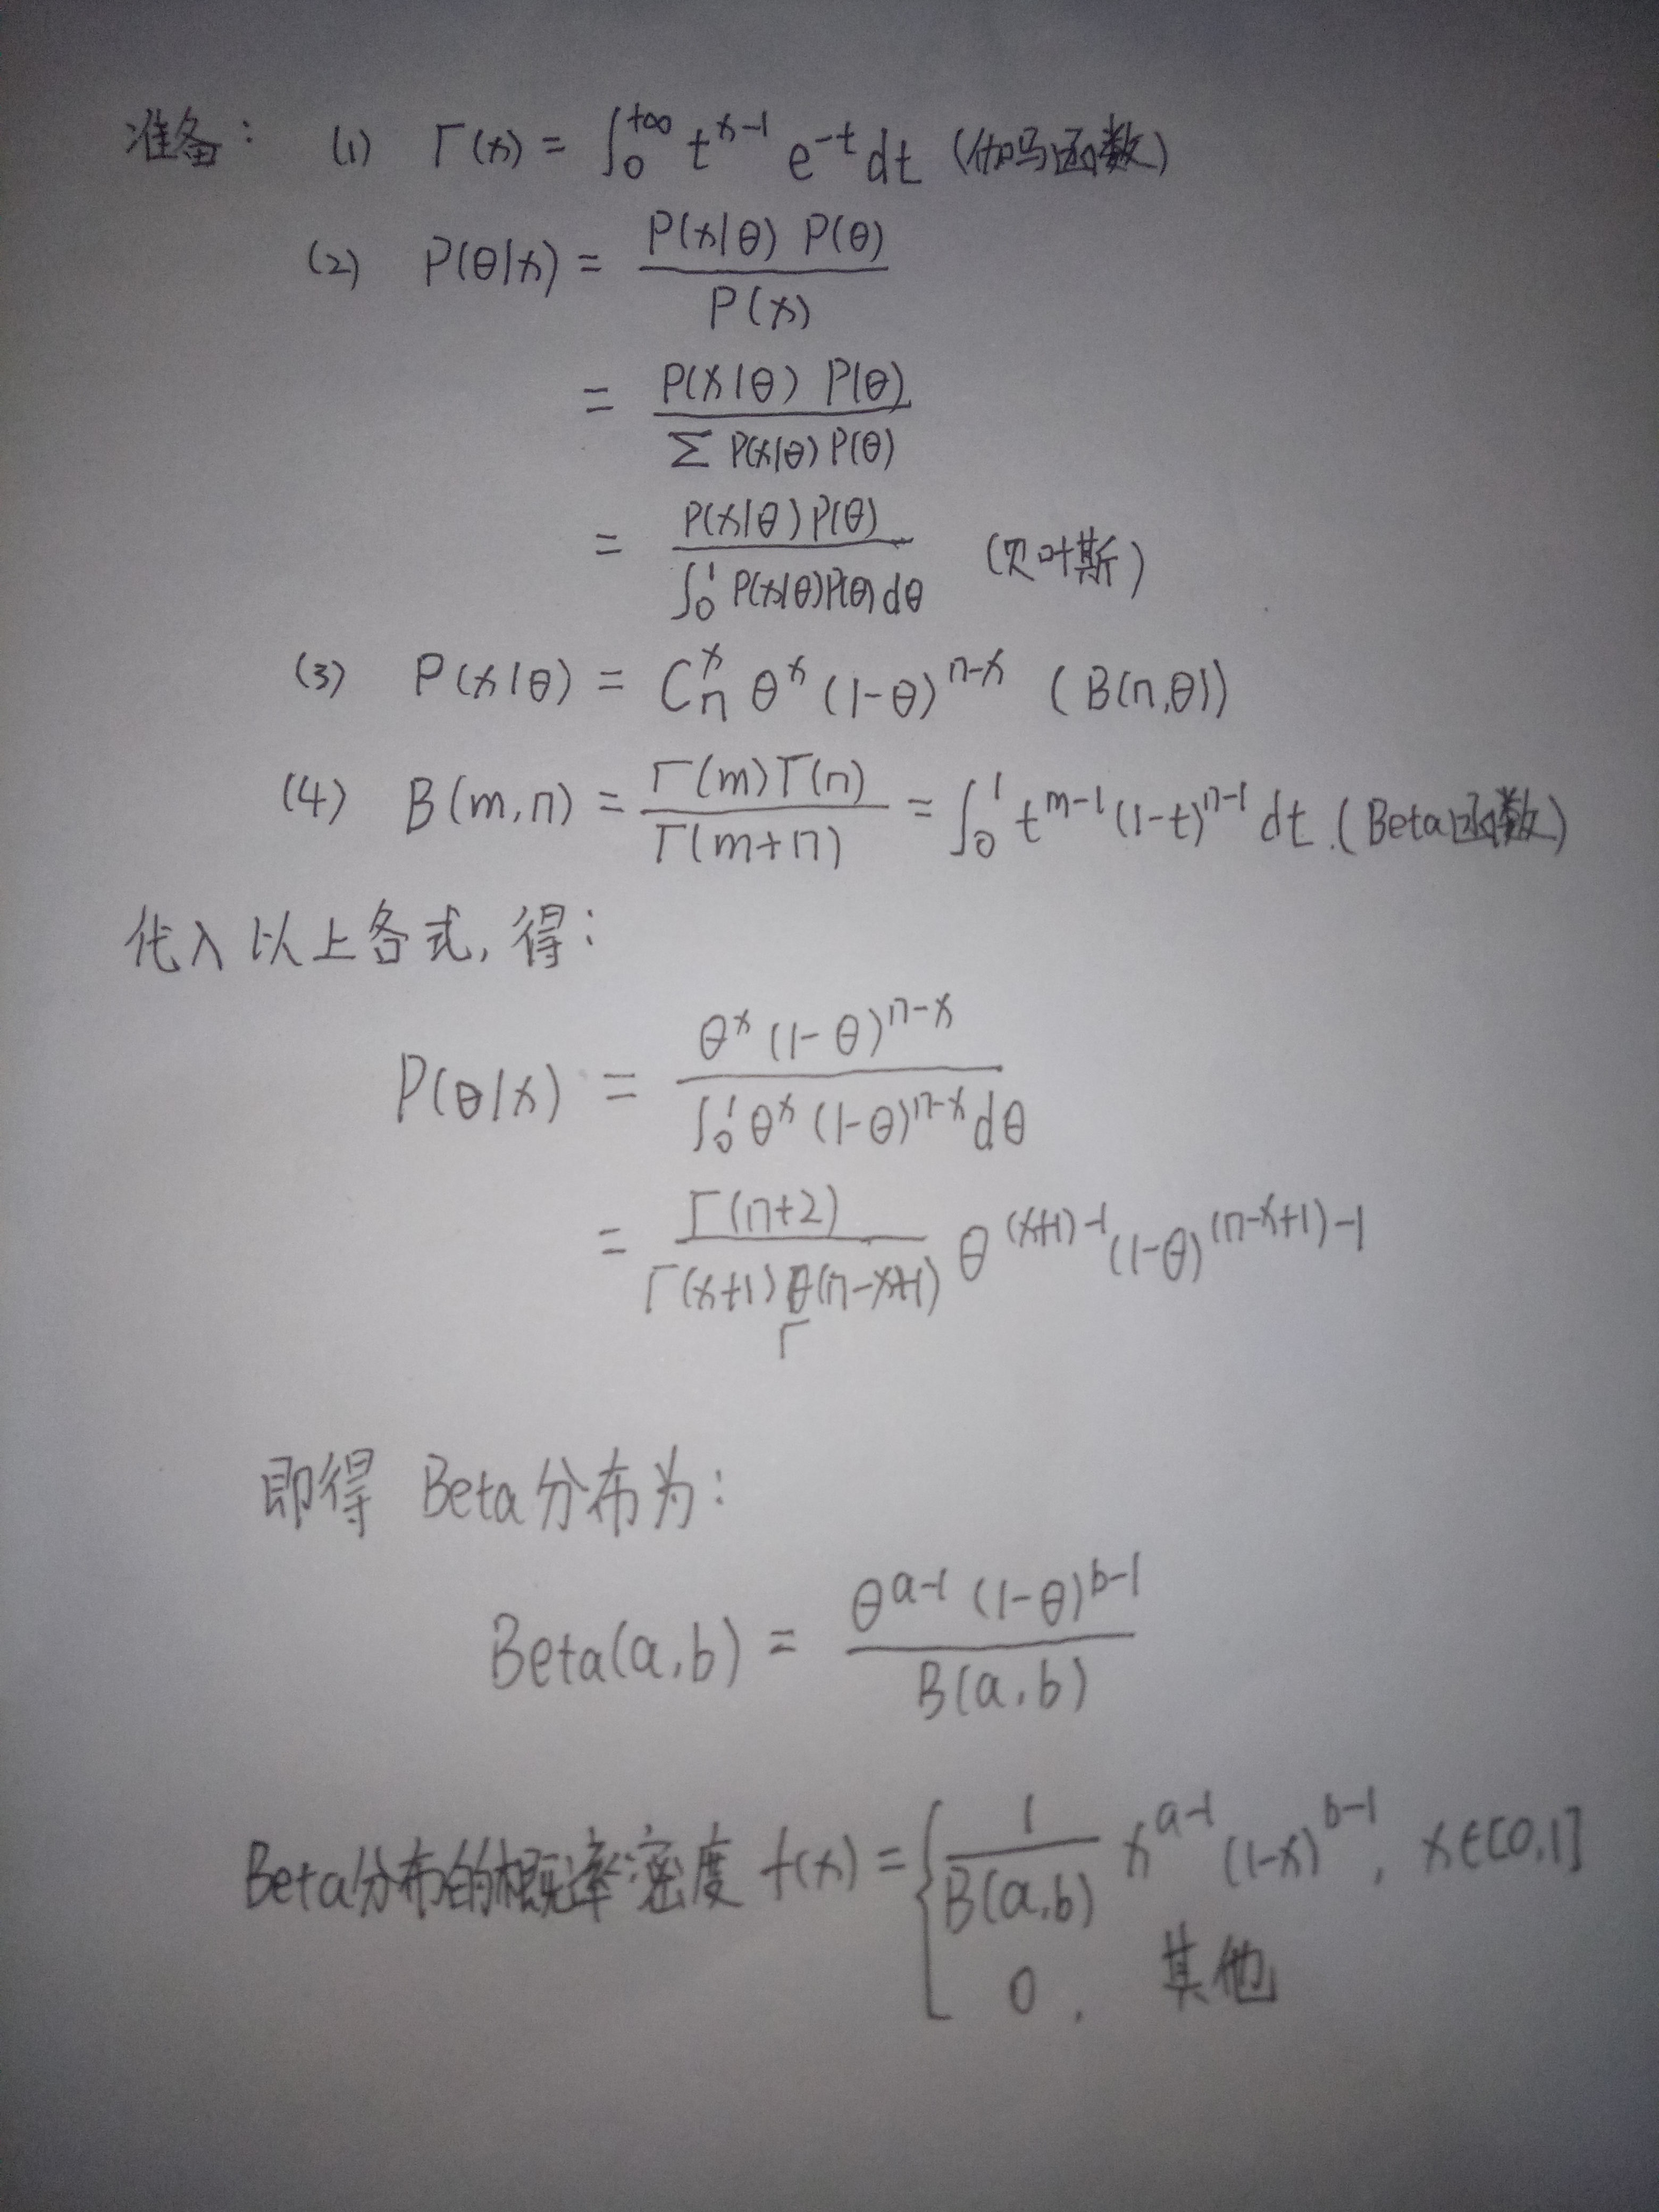 准备: (1) Γ(x) = ∫₀^{+∞} t^{x-1} e^{-t} dt (伽马函数)
(2) P(θ|x) = \frac{P(x|θ) P(θ)}{P(x)}
= \frac{P(x|θ) P(θ)}{Σ P(x|θ) P(θ)}
= \frac{P(x|θ) P(θ)}{∫₀^1 P(x|θ)P(θ) dθ} (贝叶斯)
(3) P(x|θ) = C_n^x θ^x (1-θ)^{n-x} (B(n,θ))
(4) B(m,n) = \frac{Γ(m)Γ(n)}{Γ(m+n)} = ∫₀^1 t^{m-1} (1-t)^{n-1} dt. (Beta函数)
代入以上各式, 得:
P(θ|x) = \frac{θ^x (1-θ)^{n-x}}{∫₀^1 θ^x (1-θ)^{n-x} dθ}
= \frac{Γ(n+2)}{Γ(x+1) Γ(n-x+1)} θ^{(x+1)-1} (1-θ)^{(n-x+1)-1}
即得 Beta分布为:
Beta(a,b) = \frac{θ^{a-1} (1-θ)^{b-1}}{B(a,b)}
Beta分布的概率密度 f(x) = { \frac{1}{B(a,b)} x^{a-1} (1-x)^{b-1}, x∈[0,1]
0, 其他